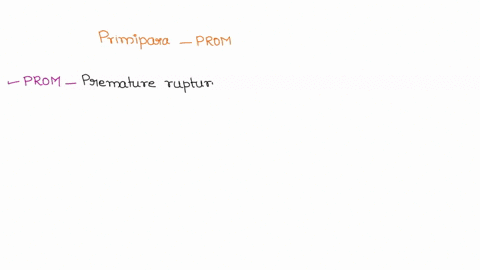 Primipara – PROM
– PROM – Premature ruptur